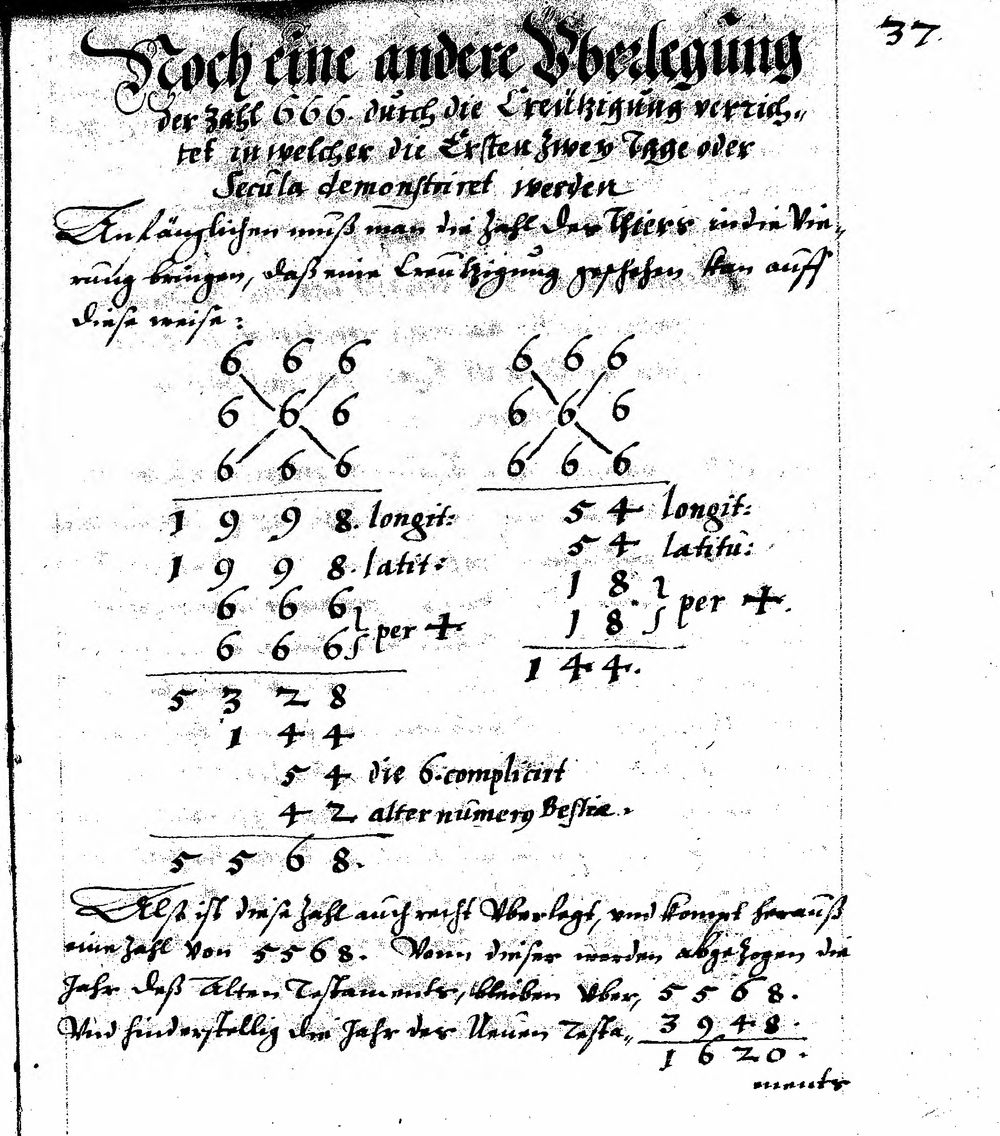 37.
Noch eine andere Vberlegung
der Zahl 666. durch die Creützigung verrich„
tet in welcher die Ersten Zwey Tage oder
Secula demonstriret werden
Anfänglichen muß man die Zahl des Thiers in die Vie„
rung bringen, daß eine Creützigung geschehen kan auff
diese weise:
6 6 6 6 6 6
6 6 6 6 6 6
6 6 6 6 6 6
1 9 9 8. longit: 5 4 longit:
1 9 9 8. latit: 5 4 latitu:
6 6 6 1 8.
6 6 6 } per + 1 8 } per +.
1 4 4.
5 3 2 8
1 4 4
5 4 die 6. complicirt
4 2 alter numerus Bestiæ.
5 5 6 8.
Alß ist diese Zahl auch recht Vberlegt, vnd kompt herauß
eine Zahl von 5568. Vonn dieser werden abgezogen die
Jahr deß Alten Testaments, bleiben vber, 5 5 6 8.
Vnd hinderstellig die Jahr des Neuen Testa„ 3 9 4 8.
1 6 2 0.
ments